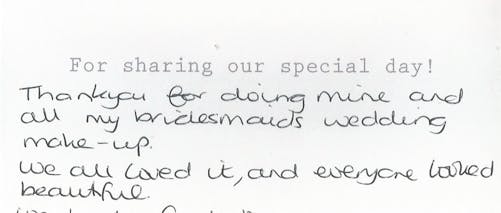 For sharing our special day!
Thankyou for doing mine and
all my bridesmaids wedding
make-up.
We all loved it, and everyone looked
beautiful.